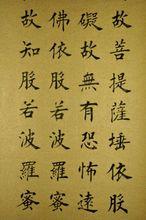 故菩提薩埵依般
礙故無有恐怖遠
佛依般若波羅蜜
故知般若波羅蜜